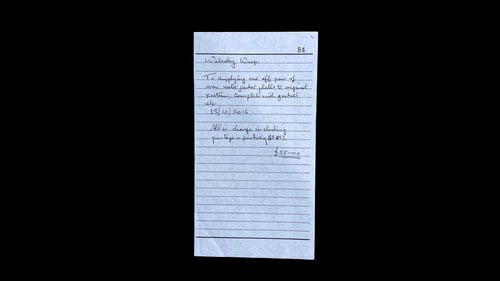 84
To supplying one off pair of
new water jacket plates to original
pattern, complete with gaskets
etc
13/10/2016
All in charge including
postage + packing